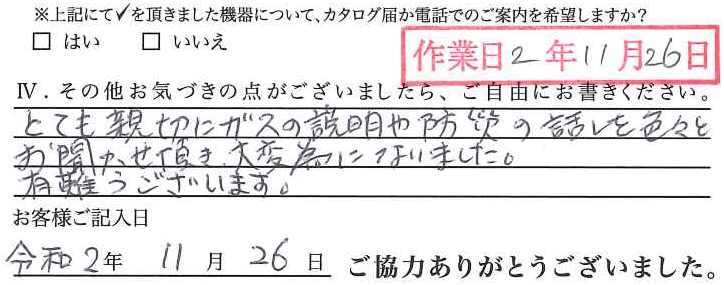 ※上記にて✓を頂きました機器について、カタログ届か電話でのご案内を希望しますか？
□ はい　□ いいえ
作業日2年11月26日
Ⅳ．その他お気づきの点がございましたら、ご自由にお書きください。
とても親切にガスの説明や防災の話しを色々と
お聞かせ頂き、大変為になりました。
有難うございます。
お客様ご記入日
令和2年 11月 26日 ご協力ありがとうございました。